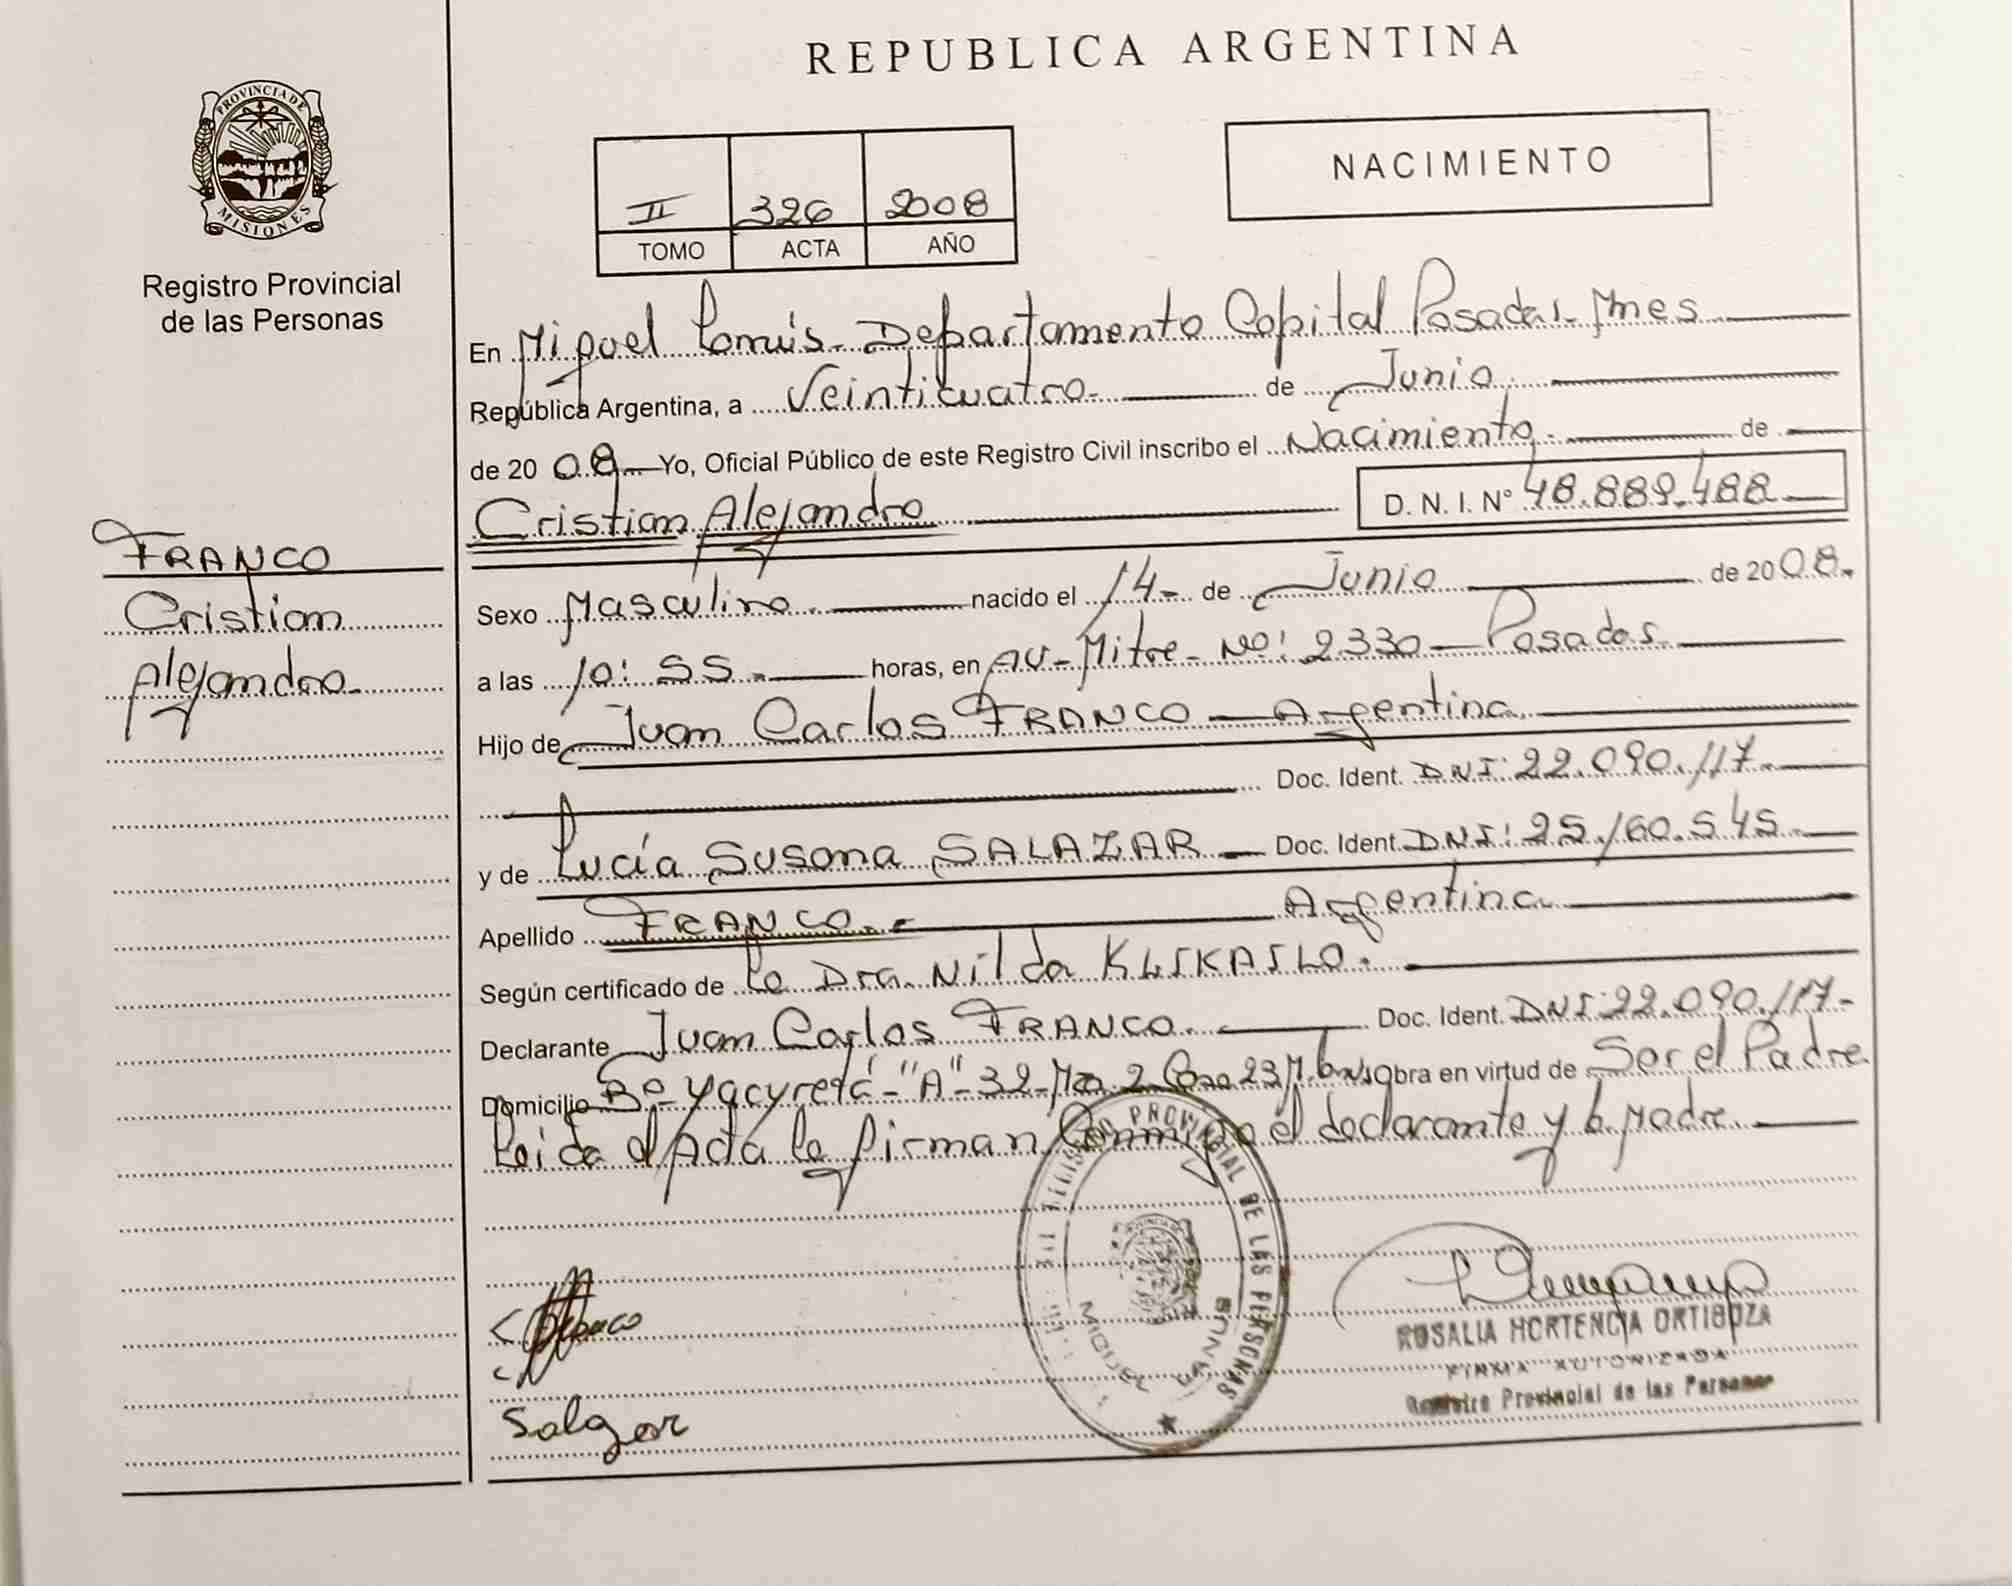 REPUBLICA ARGENTINA
PROVINCIA DE
MISIONES
Registro Provincial
de las Personas
II 326 2008
TOMO ACTA AÑO
NACIMIENTO
En Miguel Lanús - Departamento Capital Posadas - Mnes
República Argentina, a Veinticuatro - de Junio
de 20 08 Yo, Oficial Público de este Registro Civil inscribo el Nacimiento - de
Cristian Alejandro D. N. I. Nº 48.889.488
FRANCO
Cristian
Alejandro
Sexo Masculino nacido el 14 - de Junio de 20 08.
a las 10:55 horas, en AV - Mitre - Nº: 2330 - Posadas
Hijo de Juan Carlos FRANCO - Argentina
Doc. Ident. DNI: 22.090.117 -
y de Lucía Susana SALAZAR - Doc. Ident. DNI: 25.160.545
Apellido FRANCO. - Argentina
Según certificado de La Dra. Nilda
Declarante Juan Carlos FRANCO. Doc. Ident. DNI: 22.090.117 -
Domicilio Bº Yacyretá - "A" - 32 - Mza. 2 Casa 23 obra en virtud de Ser el Padre
Leida el Acta la firman Conmigo el declarante y la Madre.
REGISTRO PROVINCIAL DE LAS PERSONAS
MIGUEL LANUS
ROSALIA HORTENCIA ORTIGOZA
FIRMA AUTORIZADA
Registro Provincial de las Personas